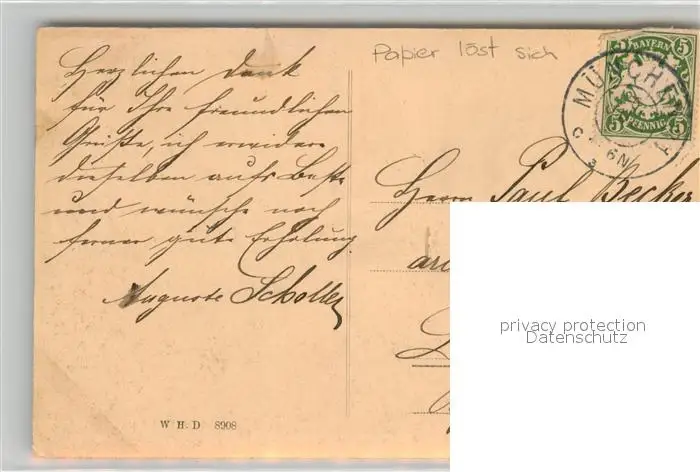 Papier löst sich
Herzlichen Dank
für Ihre freundlichen
Grüße, ich erwidere
dieselben aufs Beste
und wünsche noch
ferner gute Erholung
Auguste Scholley
W. H. D 8908
BAYERN
5 5
5 5
PFENNIG
MÜNCHEN
6N
Herrn Paul Becker
privacy protection
Datenschutz